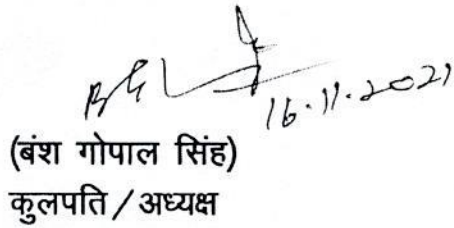 16.11.2021
(बंश गोपाल सिंह)
कुलपति / अध्यक्ष